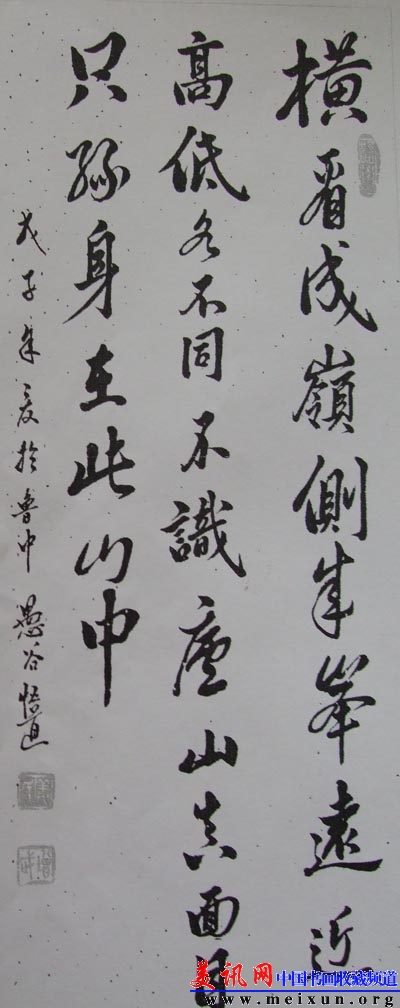 橫看成嶺側成峯遠近
高低各不同不識廬山真面目
只緣身在此山中
戊子年夏於魯中愚谷悟道
美讯网 中国书画收藏频道
www.meixun.org